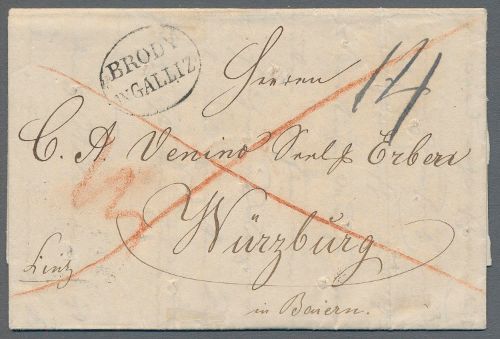 BRODY
IN GALLIZ.
14
Herren
C. A Venino Seel Erben
Würzburg
Linz
in Baiern.